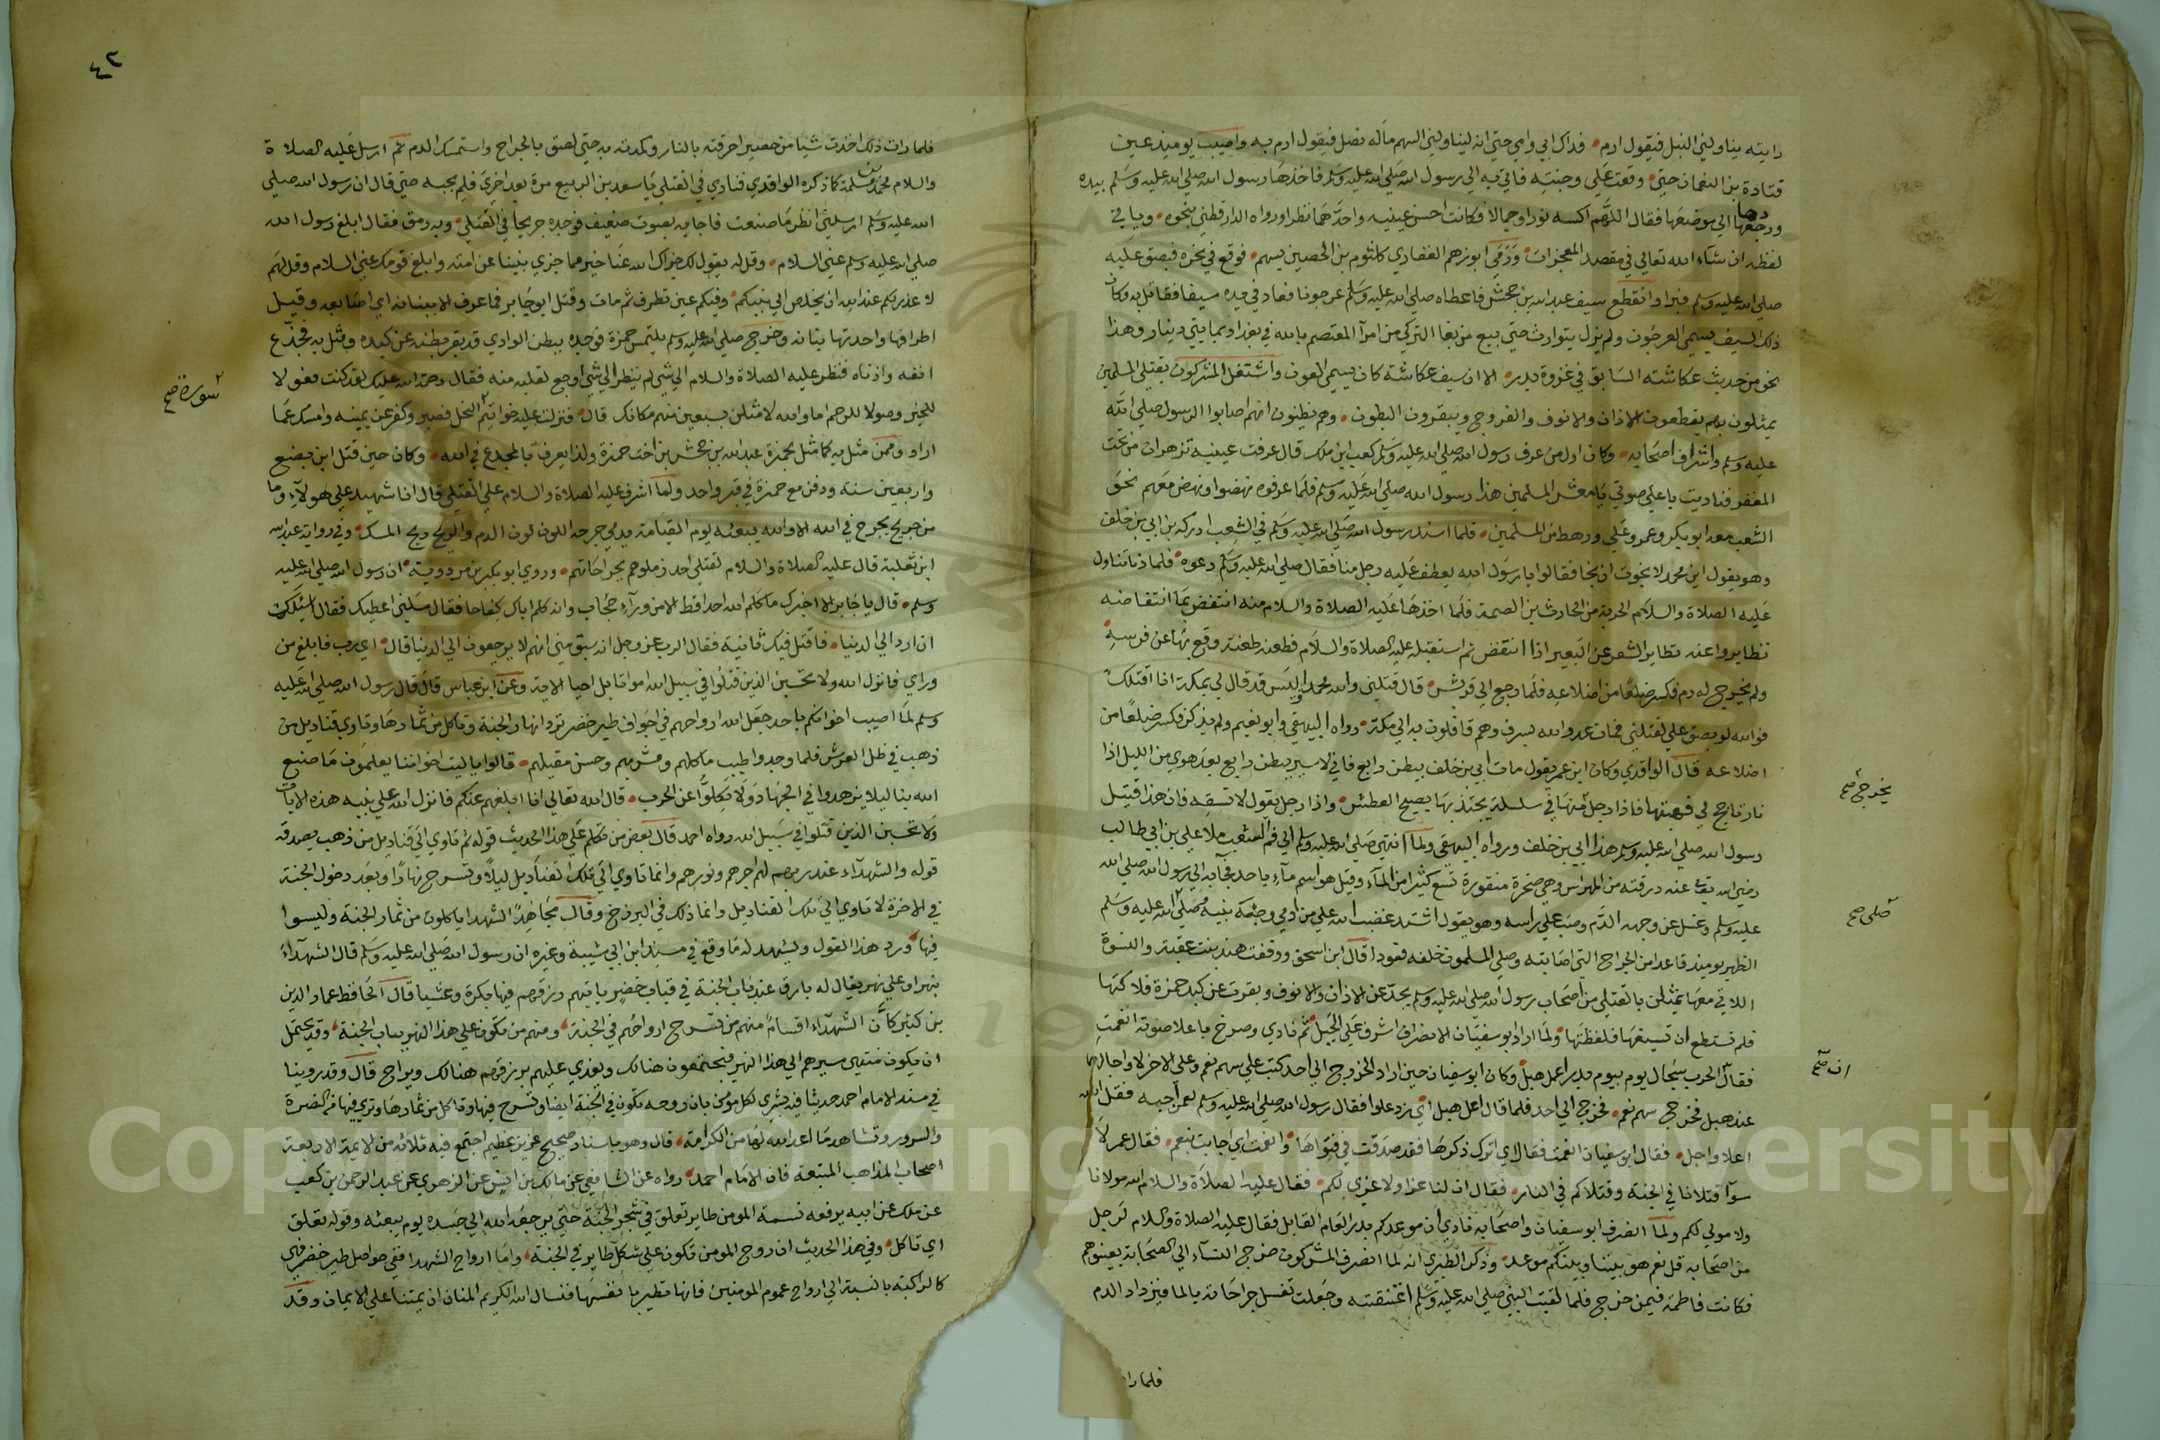 رايته يناولني النبل فيقول ارم فداك ابي وامي حتى انه ليناولني السهم ماله نصل فيقول ارم به واصيب يوميذ عين
قتادة بن النعمان حتى وقعت على وجنته فاتي به الى رسول الله صلى الله عليه وسلم فاخذها رسول الله صلى الله عليه وسلم بيده
وردها الى موضعها فقال اللهم اكسه نورا وجمالا فكانت احسن عينيه واحدهما نظرا ورواه الدارقطني بنحوه وياتي
لفظه ان شاء الله تعالى في مقصد المعجزات ورمى ابو رهم الغفاري كلثوم بن الحصين بسهم فوقع في نحره فبصق عليه
صلى الله عليه وسلم فبرا وانقطع سيف عبد الله بن جحش فاعطاه صلى الله عليه وسلم عرجونا فعاد في يده سيفا فقاتل به وكان
ذلك السيف يسمى العرجون ولم يزل يتوارث حتى بيع من بغا التركي من امرآ المعتصم بالله في بغداد بمايتي دينار وهذا
نحو من حديث عكاشة السابق في غزوة بدر الا ان سيف عكاشة كان يسمى العون واشتغل المشركون بقتلى المسلمين
يمثلون بهم يقطعون الاذان والانوف والفروج ويبقرون البطون وهم يظنون انهم اصابوا الرسول صلى الله
عليه وسلم واشراف اصحابه وكان اول من عرف رسول الله صلى الله عليه وسلم كعب ابن ملك قال عرفت عينيه تزهران من تحت
المغفر فناديت باعلى صوتي يا معشر المسلمين هذا رسول الله صلى الله عليه وسلم فلما عرفوه نهضوا ونهض معهم نحو
الشعب معه ابو بكر وعمر وعلي ورهط من المسلمين فلما اسند رسول الله صلى الله عليه وسلم في الشعب ادركه بن ابي بن خلف
وهو يقول اين محمد لا نجوت ان نجا فقالوا يا رسول الله يعطف عليه رجل منا فقال صلى الله عليه وسلم دعوه فلما دنا تناول
عليه الصلاة والسلام الحربة من الحارث بن الصمة فلما اخذها عليه الصلاة والسلام منه انتفض بها انتفاضه
تطايروا عنه تطاير الشعر عن البعير اذا انتفض ثم استقبله عليه الصلاة والسلام فطعنه طعنة وقع بها عن فرسه
ولم يخرج له دم فكسر ضلعا من اضلاعه فلما رجع الى قريش قال قتلني والله محمد اليس قد قال لي بمكة انا اقتلك
فوالله لو بصق علي لقتلني فمات عدو الله بسرف وهم قافلون به الى مكة رواه البيهقي وابو نعيم ولم يذكر فكسر ضلعا من
اضلاعه قال الواقدي وكان ابن عمر يقول مات ابي بن خلف ببطن رابغ فاني لاسير ببطن رابغ بعد هوي من الليل اذا
نار تاجج لي فهبتها فاذا رجل منها في سلسلة يجتذبها يصيح العطش واذا رجل يقول لا تسقه فان هذا قتيل
رسول الله صلى الله عليه وسلم هذا ابي بن خلف ورواه البيهقي ولما انتهى صلى الله عليه وسلم الى فم الشعب ملا علي بن ابي طالب
رضي الله تعالى عنه درقته من المهراس وهي صخرة منقورة تسع كثيرا من المآء وقيل هو اسم مآء باحد فجآء به الى رسول الله صلى الله
عليه وسلم وغسل عن وجهه الدم وصب على راسه وهو يقول اشتد غضب الله على من ادمى وجه نبيه وصلى الله عليه وسلم
الظهر يوميذ قاعدا من الجراح التي اصابته وصلى المسلمون خلفه قعودا قال ابن اسحق ووقفت هند بنت عقبة والنسوة
اللاتي معها يمثلن بالقتلى من اصحاب رسول الله صلى الله عليه وسلم يجدعن الاذان والانوف وبقرت عن كبد حمزة فلاكتها
فلم تستطع ان تسيغها فلفظتها ولما اراد ابو سفيان الانصراف اشرف على الجبل ثم نادى وصرخ باعلا صوته انعمت
فعال الحرب سجال يوم بيوم بدر اعل هبل وكان ابو سفيان حين اراد الخروج الى احد كتب على سهم نعم وعلى الاخر لا واجالهما
عند هبل فخرج سهم نعم فخرج الى احد فلما قال اعل هبل اي زد علوا فقال رسول الله صلى الله عليه وسلم لعمر اجبه فقل الله
اعلا واجل فقال ابو سفيان انعمت فعال اي اترك ذكرها فقد صدقت في فتواها وانعمت اي اجابت بنعم فقال عمر لا
سوآ قتلانا في الجنة وقتلاكم في النار فقال ان لنا عزا ولا عزى لكم فقال عليه الصلاة والسلام الله مولانا
ولا مولى لكم ولما انصرف ابو سفيان واصحابه نادى ان موعدكم بدر العام القابل فقال عليه الصلاة والسلام لرجل
من اصحابه قل نعم هو بيننا وبينكم موعد وذكر الطبري انه لما انصرف المشركون خرج النسآء الى الصحابة يعينوهم
فكانت فاطمة فيمن خرج فلما لقيت النبي صلى الله عليه وسلم اعتنقته وجعلت تغسل جراحاته بالما فيزداد الدم
فلما رات
يخرج صح
صلى صح
ان صح
٤٢
فلما رات ذلك اخذت شيا من حصير احرقته بالنار وكمدته به حتى لصق بالجراح واستمسك الدم ثم ارسل عليه الصلاة
والسلام محمد بن مسلمة كما ذكره الواقدي فنادى في القتلى يا سعد بن الربيع مرة بعد اخرى فلم يجبه حتى قال ان رسول الله صلى
الله عليه وسلم ارسلني انظر ما صنعت فاجابه بصوت ضعيف فوجده جريحا في القتلى وبه رمق فقال ابلغ رسول الله
صلى الله عليه وسلم عني السلام وقل له يقول لك جزاك الله عنا خير مما جزى نبينا عن امته وابلغ قومك عني السلام وقل لهم
لا عذر لكم عند الله ان يخلص الى نبيكم وفيكم عين تطرف ثم مات وقتل ابو جابر فما عرف الا ببنانه اي اصابعه وقيل
اطرافها واحدتها بنانه وخرج صلى الله عليه وسلم يلتمس حمزة فوجده ببطن الوادي قد بقر بطنه عن كبده ومثل به فجدع
انفه واذناه فنظر عليه الصلاة والسلام الى شي لم ينظر الى شي اوجع لقلبه منه فقال رحمة الله عليك لقد كنت فعولا
للخير وصولا للرحم اما والله لامثلن بسبعين منهم مكانك قال فنزلت عليه خواتم النحل فصبر وكفر عن يمينه وامسك عما
اراد وممن مثل به كما مثل بحمزة عبد الله بن جحش بن اخت حمزة ولذا يعرف بالمجدع في الله وكان حين قتل ابن بضع
واربعين سنة ودفن مع حمزة في قبر واحد ولما اشرف عليه الصلاة والسلام على القتلى قال انا شهيد على هولاء وما
من جريح يجرح في الله الا والله يبعثه يوم القيامة يدمي جرحه اللون لون الدم والريح ريح المسك وفي رواية عبد الله
ابن ثعلبة قال عليه الصلاة والسلام لقتلى احد زملوهم بجراحاتهم وروى ابو بكر بن مردوية ان رسول الله صلى الله عليه
وسلم قال يا جابر الا اخبرك ما كلم الله احدا قط الا من ورآء حجاب وانه كلم اباك كفاحا فقال سلني اعطيك فقال اسئلك
ان ارد الى الدنيا فاقتل فيك ثانية فقال الرب عز وجل انه سبق مني انهم لا يرجعون الى الدنيا قال اي رب فابلغ من
وراي فانزل الله ولا تحسبن الذين قتلوا في سبيل الله امواتا بل احيا الاية وعن ابن عباس قال قال رسول الله صلى الله عليه
وسلم لما اصيب اخوانكم باحد جعل الله ارواحهم في اجواف طير خضر ترد انهار الجنة وتاكل من ثمارها وتاوي قناديل من
ذهب في ظل العرش فلما وجدوا طيب ماكلهم ومشربهم وحسن مقيلهم قالوا يا ليت اخواننا يعلمون ما صنع
الله بنا ليلا يزهدوا في الجهاد ولا يتكلوا عن الحرب قال الله تعالى انا ابلغهم عنكم فانزل الله على نبيه هذه الايات
ولا تحسبن الذين قتلوا في سبيل الله رواه احمد قال بعض من تكلم على هذا الحديث قوله ثم تاوي الى قناديل من ذهب يصدقه
قوله والشهدآء عند ربهم لهم اجرهم ونورهم وانما تاوي الى تلك القناديل ليلا وتسرح نهارا وبعد دخول الجنة
في الاخرة لا تاوي الى تلك القناديل وانما ذلك في البرزخ وقال مجاهد الشهدا ياكلون من ثمار الجنة وليسوا
فيها ورد هذا القول ويشهد له ما وقع في مسند ابن ابي شيبة وغيره ان رسول الله صلى الله عليه وسلم قال الشهدآء
بنهر او على نهر يقال له بارق عند باب الجنة في قباب خضر ياتيهم رزقهم فيها بكرة وعشيا قال الحافظ عماد الدين
بن كثير كان الشهدآء اقسام منهم من تسرح ارواحهم في الجنة ومنهم من يكون على هذا النهر بباب الجنة وقد يحتمل
ان يكون منتهى سيرهم الى هذا النهر فيجتمعون هنالك ويغدى عليهم برزقهم هنالك ويراح قال وقد روينا
في مسند الامام احمد حديثا فيه بشرى لكل مومن بان روحه تكون في الجنة ايضا وتسرح فيها وتاكل من ثمارها وترى فيها من النضرة
والسرور وتشاهد ما اعد الله لها من الكرامة قال وهو باسناد صحيح عزيز عظيم اجتمع فيه ثلاثة من الايمة الاربعة
اصحاب المذاهب المتبعة فان الامام احمد رواه عن الشافعي عن مالك بن انس عن الزهري عن عبد الرحمن بن كعب
عن ملك عن ابيه يرفعه نسمة المومن طاير تعلق في شجر الجنة حتى يرجعه الله الى جسده يوم يبعثه وقوله تعلق
اي تاكل وفي هذا الحديث ان روح المومن تكون على شكل طاير في الجنة واما ارواح الشهدا ففي حواصل طير خضر فهي
كالراكبة بالنسبة الى ارواح عموم المومنين فانها تطير بانفسها فنسال الله الكريم المنان ان يميتنا على الايمان وقد
سورة صح
Copyright © King Saud University